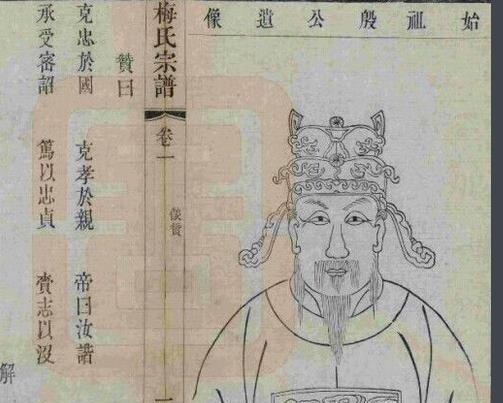 始祖殷公遺像
梅氏宗譜 卷一 像贊 一
贊曰
克忠於國 克孝於親 帝曰汝諧
承受密詔 篤以忠貞 賫志以沒
解